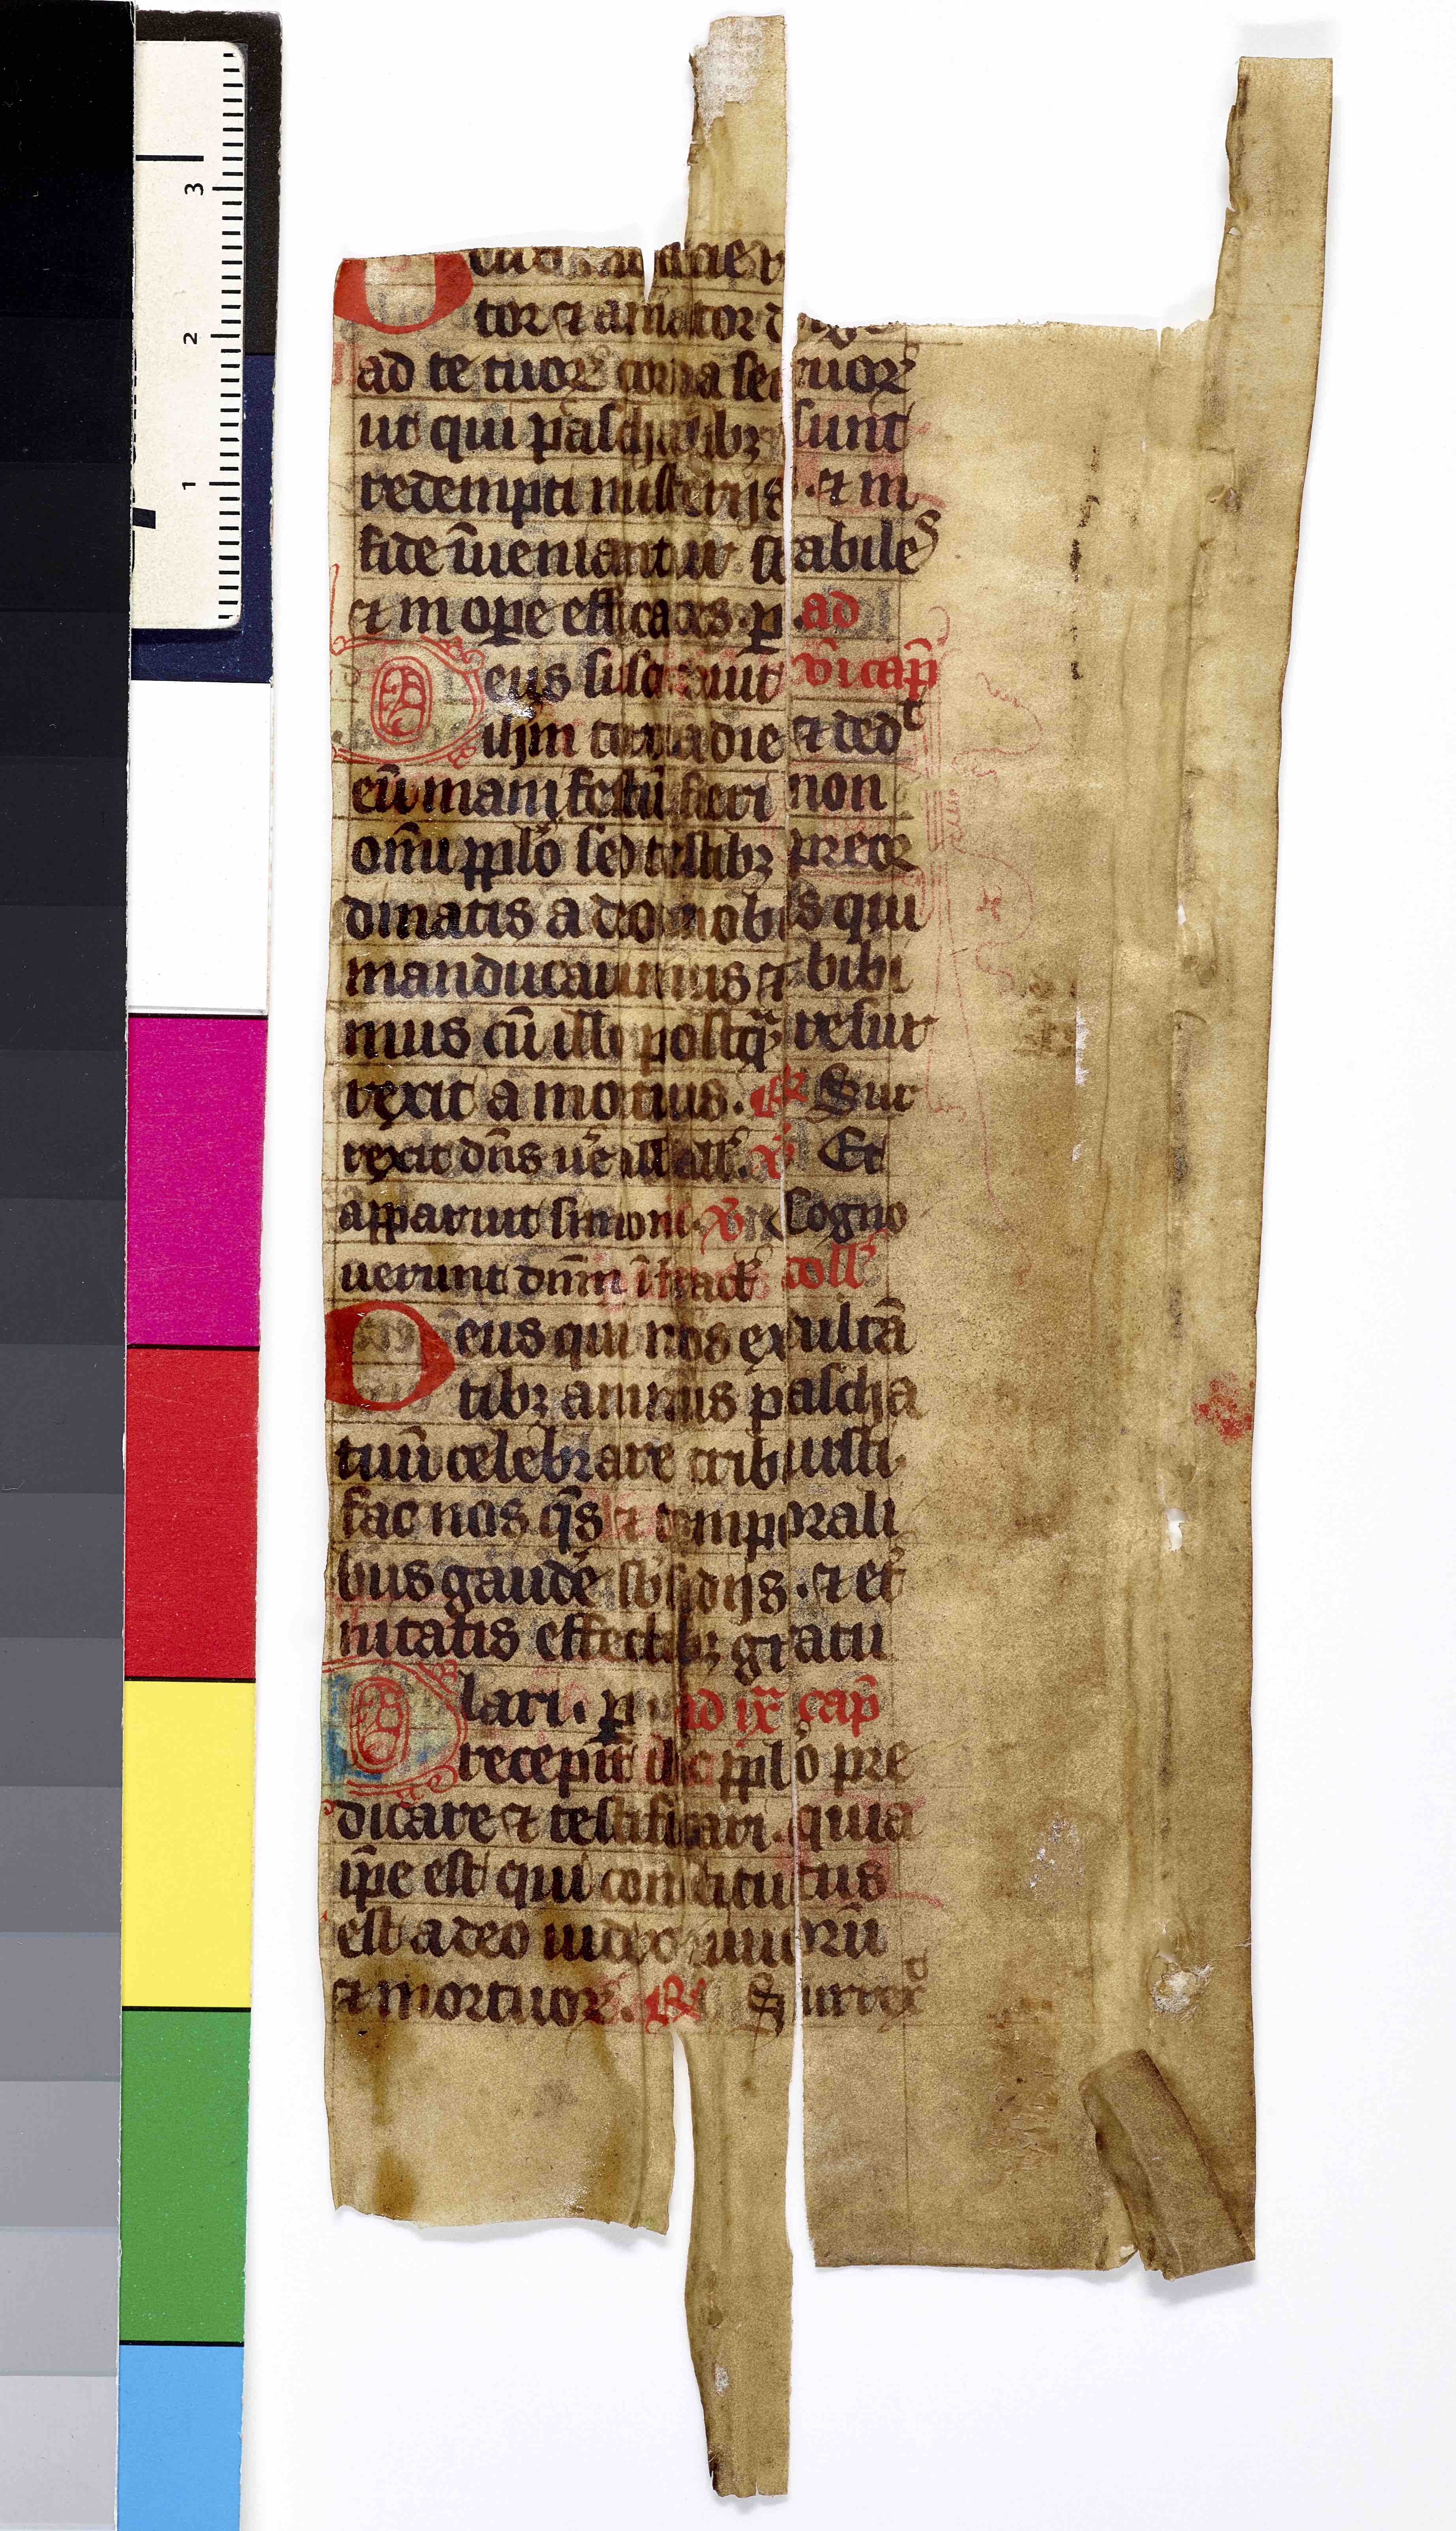 tor ⁊ amator
ad te tuoꝝ corda seruoꝝ
ut qui paschalibꝫ sunt
redempti misterijs . ⁊ in
fide īueniantur stabiles
⁊ in oꝑe efficaces . ꝑ . ad
Deus suscitauit vi cap̄
ihm tercia die ⁊ dedᵗ
eū manifestū fieri non
om̄i pp̄lo sed testibꝫ preor
dinatis a deo nobis qui
manducauimus ⁊ bibi
mus cū illo postq̄ resur
rexit a mortuis . ℟ Sur
rexit dn̄s ue͛ all͛ all͛ . ꝟ Et
apparuit simoni . ꝟ Cogno
uerunt dn̄m ī frac͛ coll͛
Deus qui nos exultā
tibꝫ animis pascha
tuū celebrare tribuisti
fac nos q̄s ⁊ temporali
bus gaude͛ sb̄sidijs . ⁊ et͛
nitatis effectibꝫ gratu
lari . ꝑ ad ixᵃ cap̄
Precepit ih̄c pp̄lo pre
dicare ⁊ testificari . quia
ip̄e est qui constitutus
est a deo iudex uiuorū
⁊ mortuoꝝ . ℟ Surrexᵗ
3
2
1